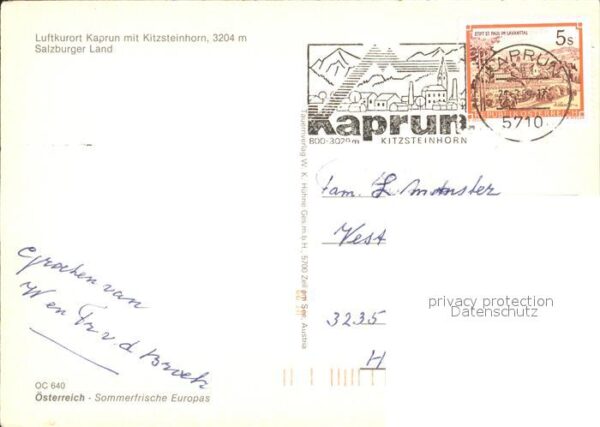 Luftkurort Kaprun mit Kitzsteinhorn, 3204 m
Salzburger Land
STIFT ST. PAUL IM LAVANTTAL
5s
REPUBLIK ÖSTERREICH
KAPRUN
5710
Kaprun
800-3029m KITZSTEINHORN
Tauernverlag W. K. Hühne Ges.m.b.H., 5700 Zell am See, Austria
Fam. L. Munster
Vest
3235
H
privacy protection
Datenschutz
Groeten van
W en Tr v. d. Broek
OC 640
Österreich - Sommerfrische Europas